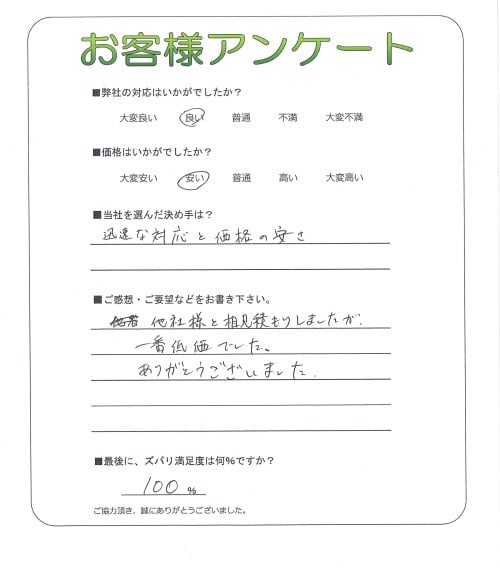 お客様アンケート
■弊社の対応はいかがでしたか？
大変良い　良い　普通　不満　大変不満
■価格はいかがでしたか？
大変安い　安い　普通　高い　大変高い
■当社を選んだ決め手は？
迅速な対応と価格の安さ
■ご感想・ご要望などをお書き下さい。
他社様と相見積もりしましたが、
一番低価でした。
ありがとうございました.
■最後に、ズバリ満足度は何％ですか？
100 %
ご協力頂き、誠にありがとうございました。